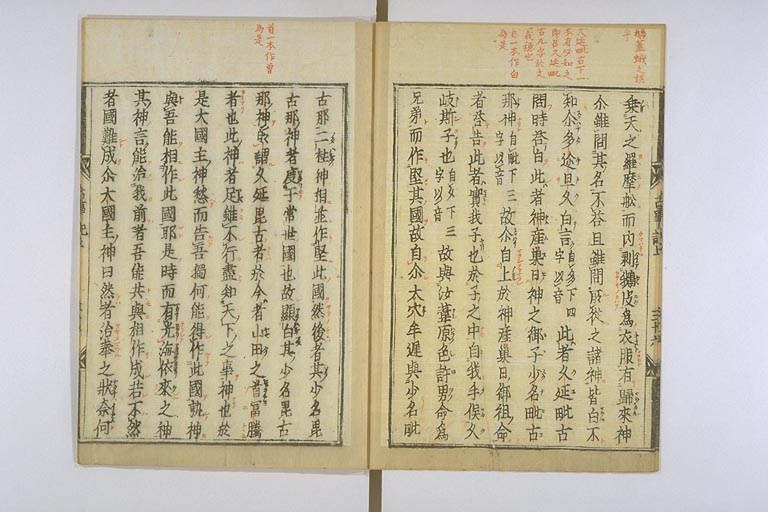 鵝蓋蛾之誤乎
乗天之羅摩舩而内剥鵝皮為衣服有歸來神
尒雖問其名不答且雖問所從之諸神皆白不
久延毗古下一本有必知之即召久延毗古九字於文義穏也
知尒多迩且久白言自多下四字以音此者久延毗古
問時荅白此者神産巣日神之御子少名毗古
自一本作白為是
那神自毗下三字以音故尒自上於神産巣日御祖命
者荅告此者實我子也於子之中自我手俣久
岐斯子也自久下三字以音故與汝葦原色許男命為
兄弟而作堅其國故自尒大穴牟遲與少名毗
古那二柱神相並作堅此國然後者其少名毘
古那神者度于常世國也故顯白其少名毘古
首一本作曽為是
那神所謂久延毘古者於今者山田之首富騰
者也此神者足雖不行盡知天下之事神也於
是大國主神愁而告吾獨何能得作此國孰神
與吾能相作此國耶是時而有光海依來之神
其神言能治我前者吾能共與相作成若不然
者國難成尒大國主神曰然者治奉之狀奈何